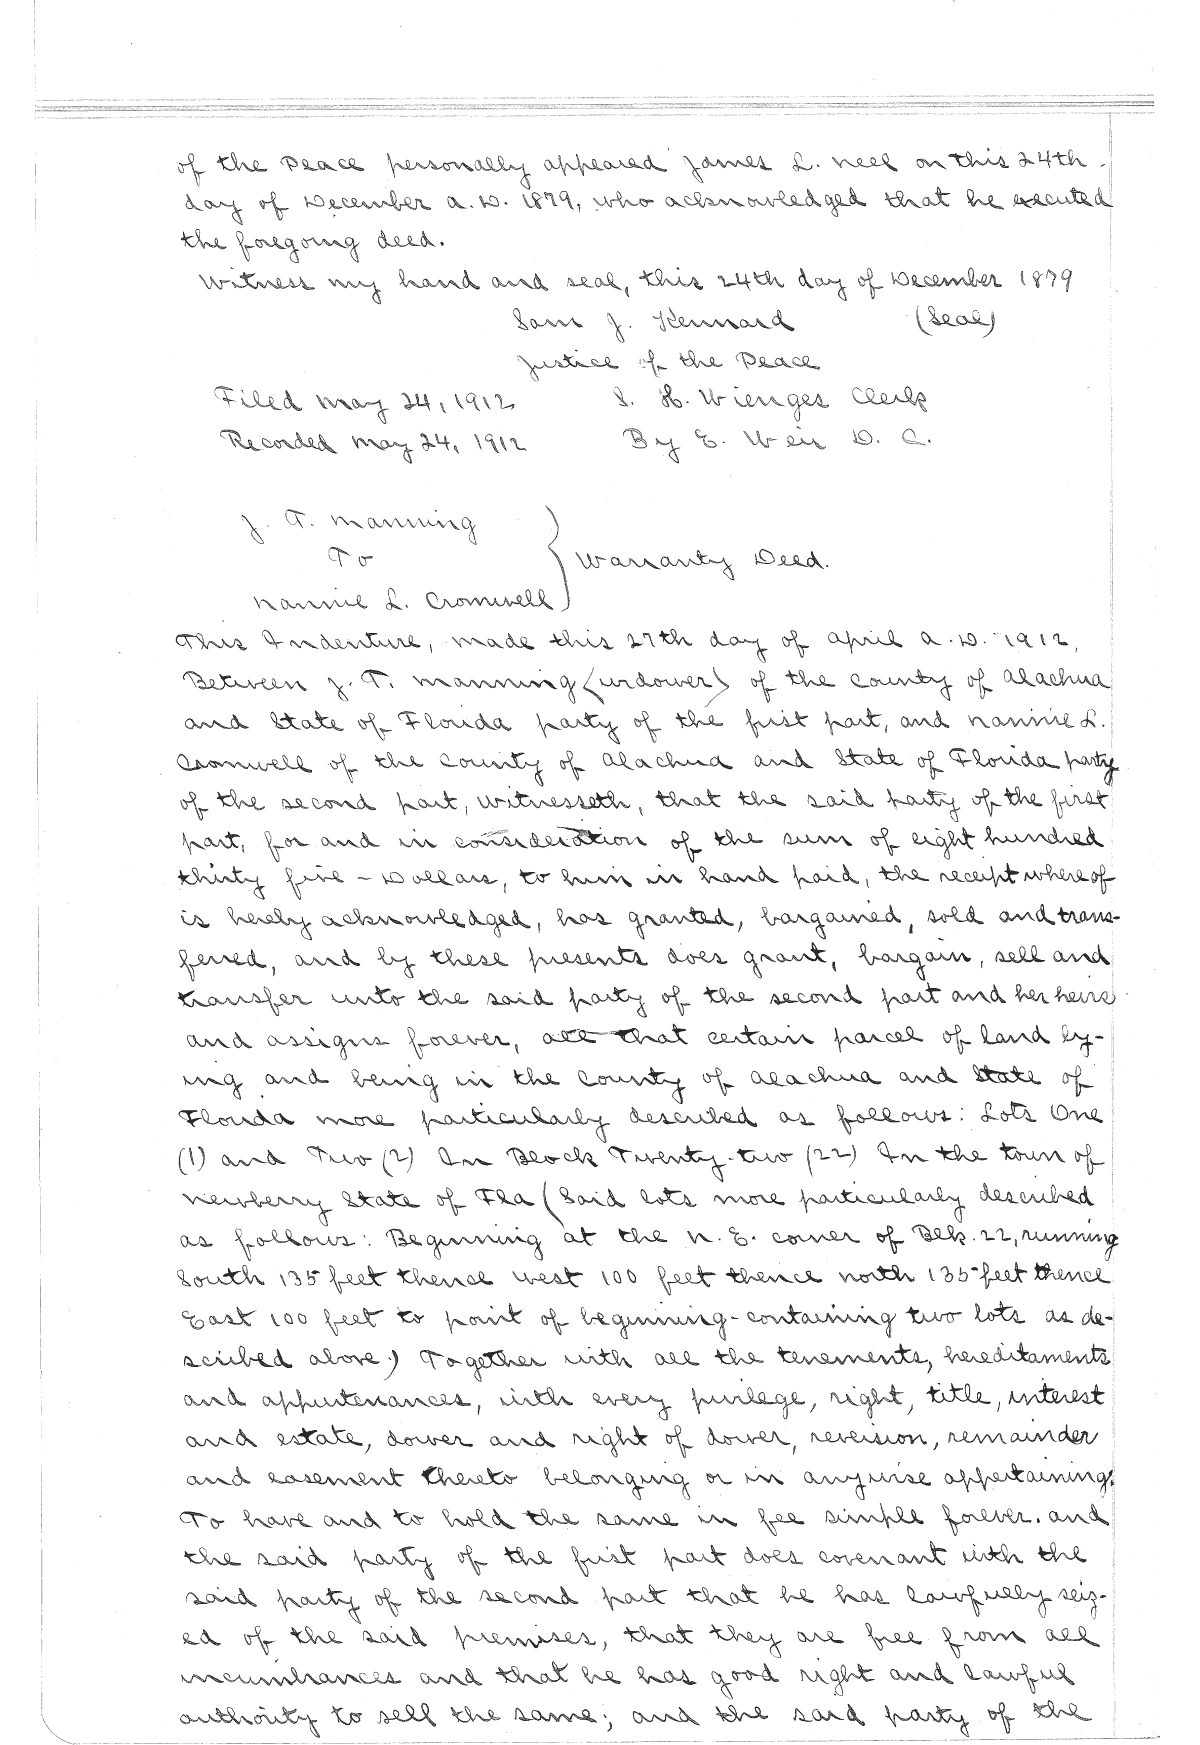 of the Peace personally appeared James L. Neel on this 24th
day of December A. D. 1879, who acknowledged that he executed
the foregoing deed.
Witness my hand and seal, this 24th day of December 1879
Sam J. Kennard (Seal)
Justice of the Peace
Filed May 24, 1912 S. H. Wienges Clerk
Recorded May 24, 1912 By E. Weir D. C.
J. T. Manning
To
Warranty Deed.
Nannie L. Cromwell
This Indenture, made this 27th day of April A. D. 1912,
Between J. T. Manning (widower) of the County of Alachua
and State of Florida party of the first part, and Nannie L.
Cromwell of the County of Alachua and State of Florida party
of the second part, witnesseth, that the said party of the first
part, for and in consideration of the sum of eight hundred
thirty five – Dollars, to him in hand paid, the receipt whereof
is hereby acknowledged, has granted, bargained, sold and trans-
ferred, and by these presents does grant, bargain, sell and
transfer unto the said party of the second part and her heirs
and assigns forever, all that certain parcel of land ly-
ing and being in the County of Alachua and State of
Florida more particularly described as follows: Lots One
(1) and Two (2) In Block Twenty-two (22) In the town of
Newberry State of Fla (Said lots more particularly described
as follows: Beginning at the N. E. corner of Blk. 22, running
South 135 feet thence west 100 feet thence north 135 feet thence
East 100 feet to point of beginning - containing two lots as de-
scribed above) Together with all the tenements, hereditaments
and appurtenances, with every privilege, right, title, interest
and estate, dower and right of dower, reversion, remainder
and easement thereto belonging or in anywise appertaining:
To have and to hold the same in fee simple forever. And
the said party of the first part does covenant with the
said party of the second part that he has lawfully seiz-
ed of the said premises, that they are free from all
incumbrances and that he has good right and lawful
authority to sell the same; and the said party of the